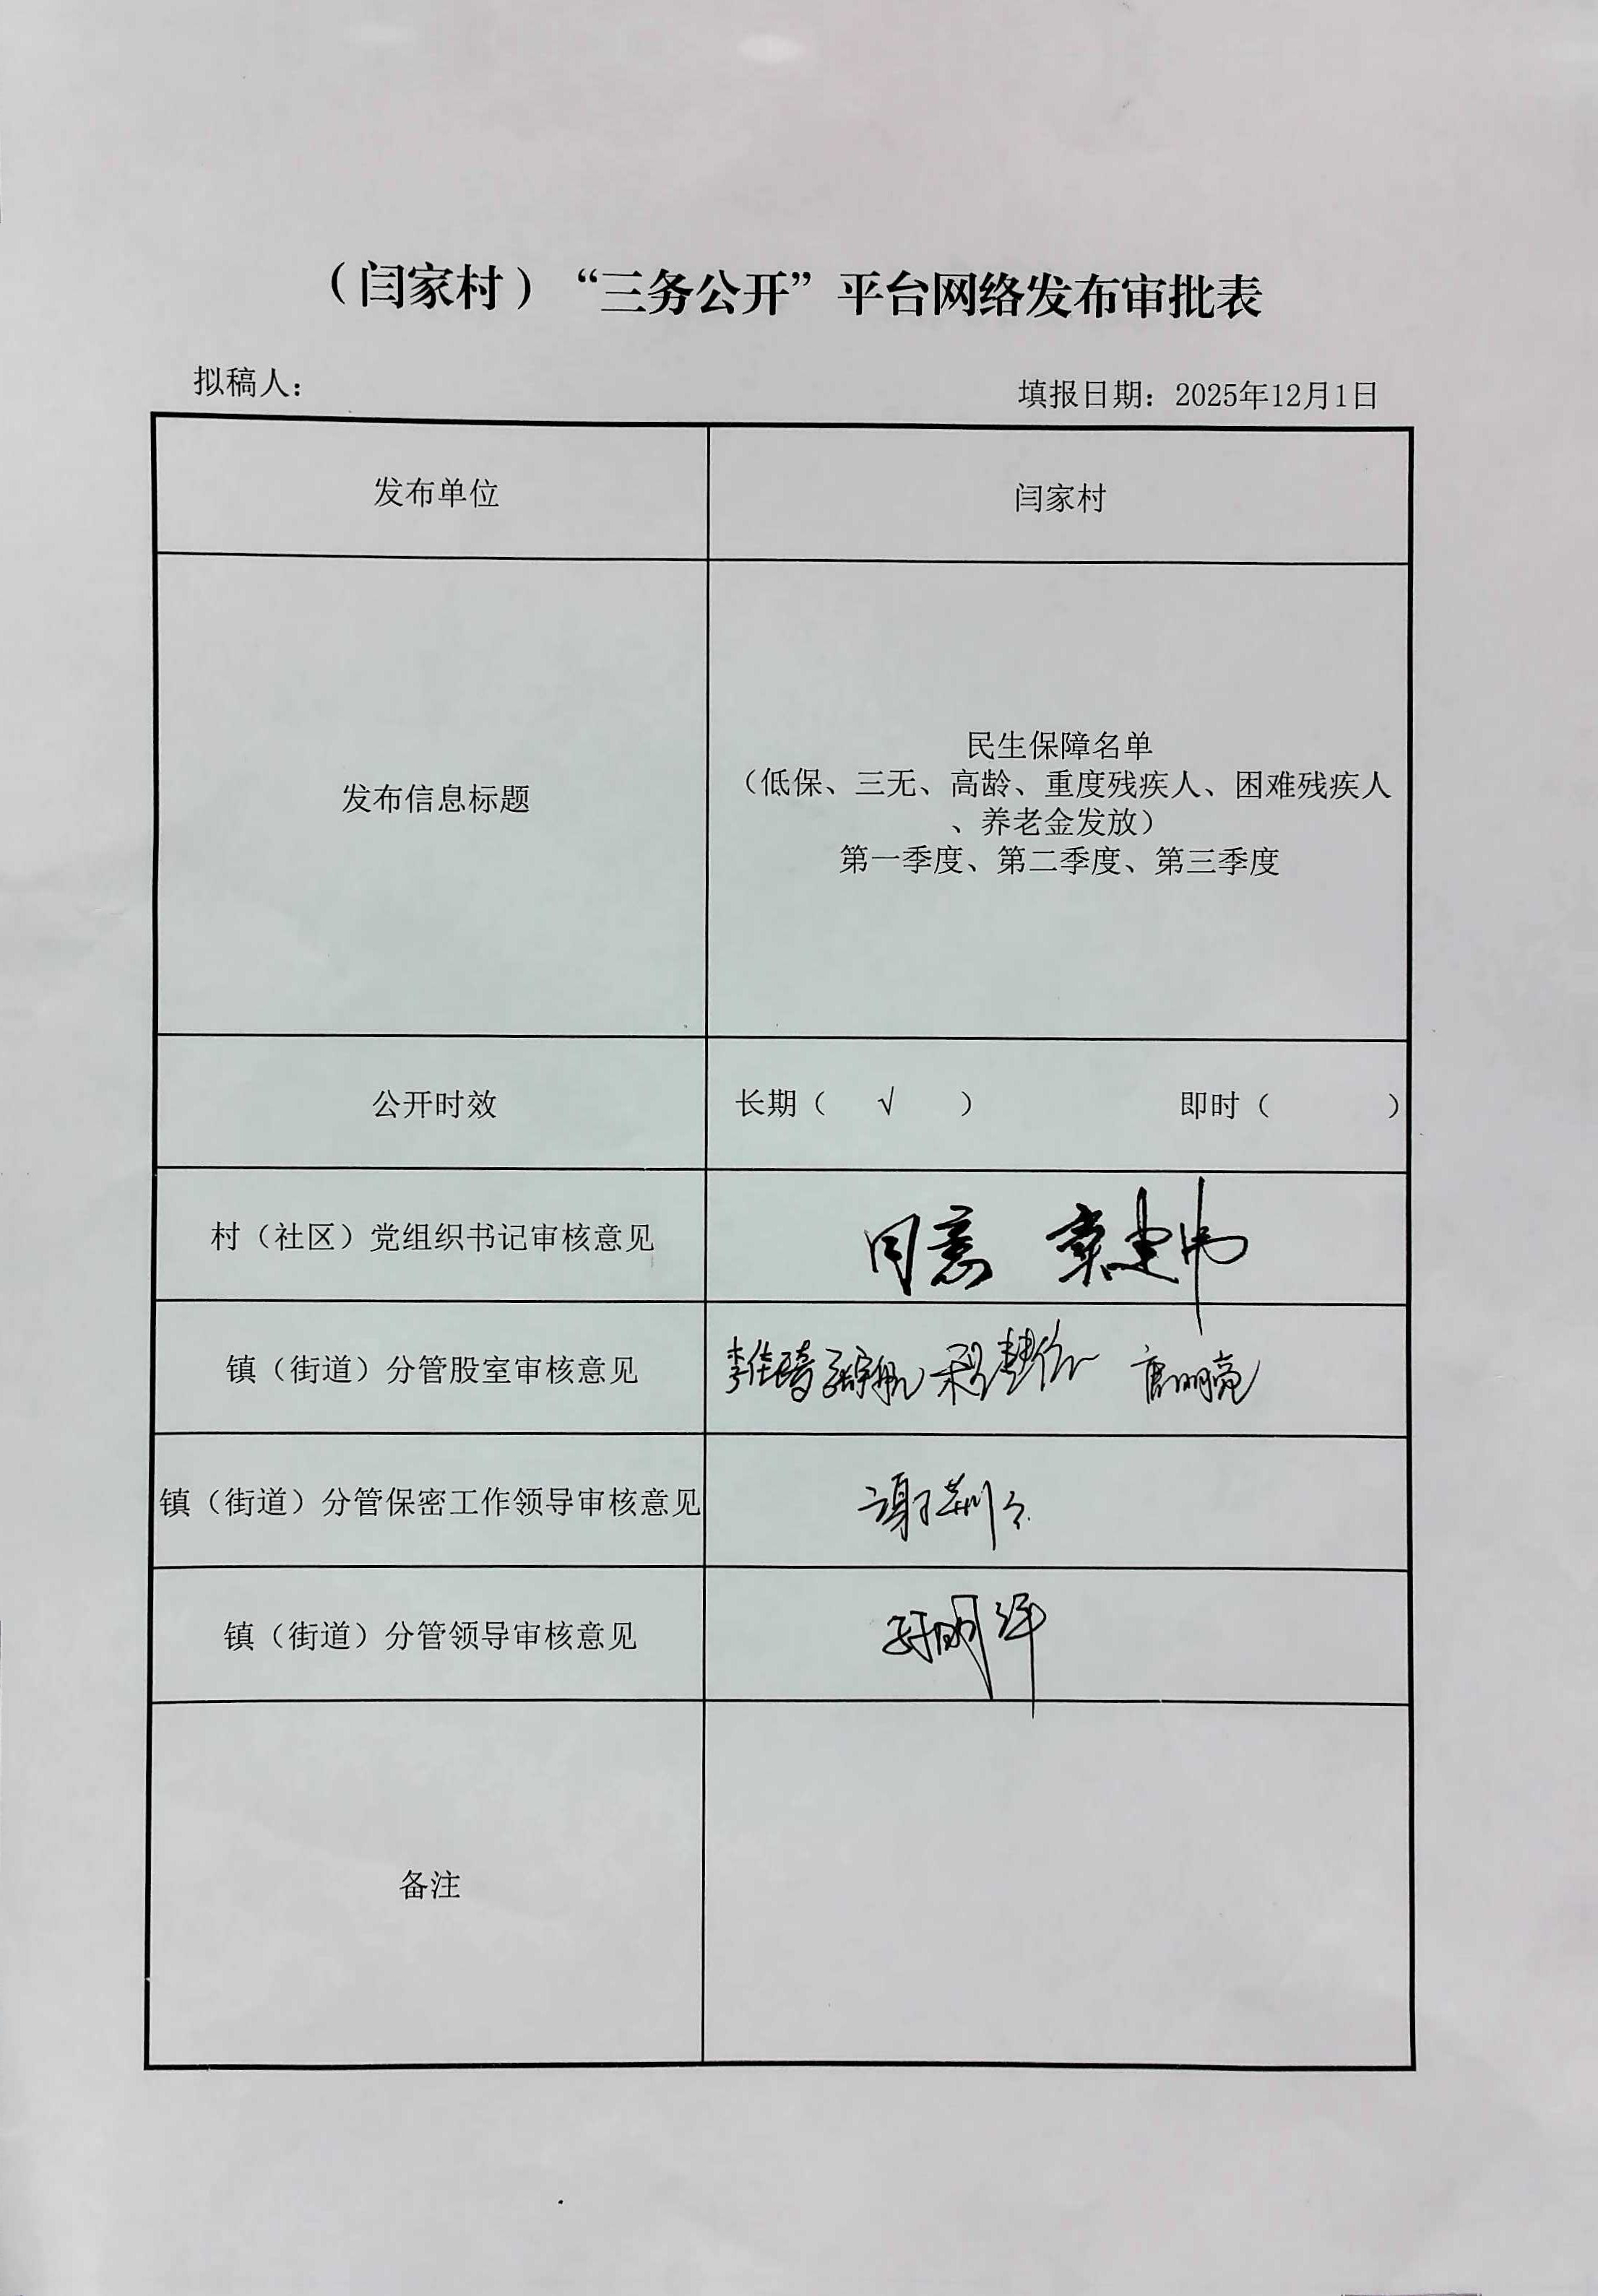 （闫家村）“三务公开”平台网络发布审批表
拟稿人： 填报日期：2025年12月1日
发布单位 闫家村
发布信息标题
民生保障名单
（低保、三无、高龄、重度残疾人、困难残疾人
、养老金发放）
第一季度、第二季度、第三季度
公开时效 长期（ √ ） 即时（ ）
村（社区）党组织书记审核意见 同意
镇（街道）分管股室审核意见 李佳琦 唐明亮
镇（街道）分管保密工作领导审核意见
镇（街道）分管领导审核意见
备注